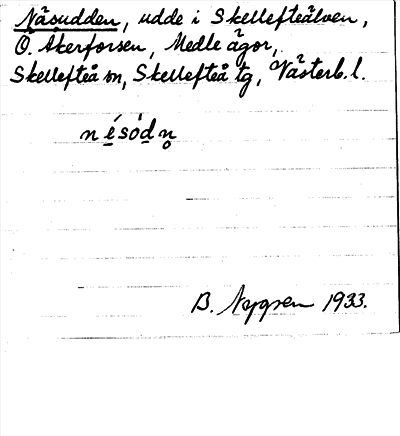 Näsudden, udde i Skellefteälven,
Ö. Åkerforsen, Medle ägor,
Skellefteå sn, Skellefteå tg, Västerb. l.
nésódn̥
B. Nygren 1933.